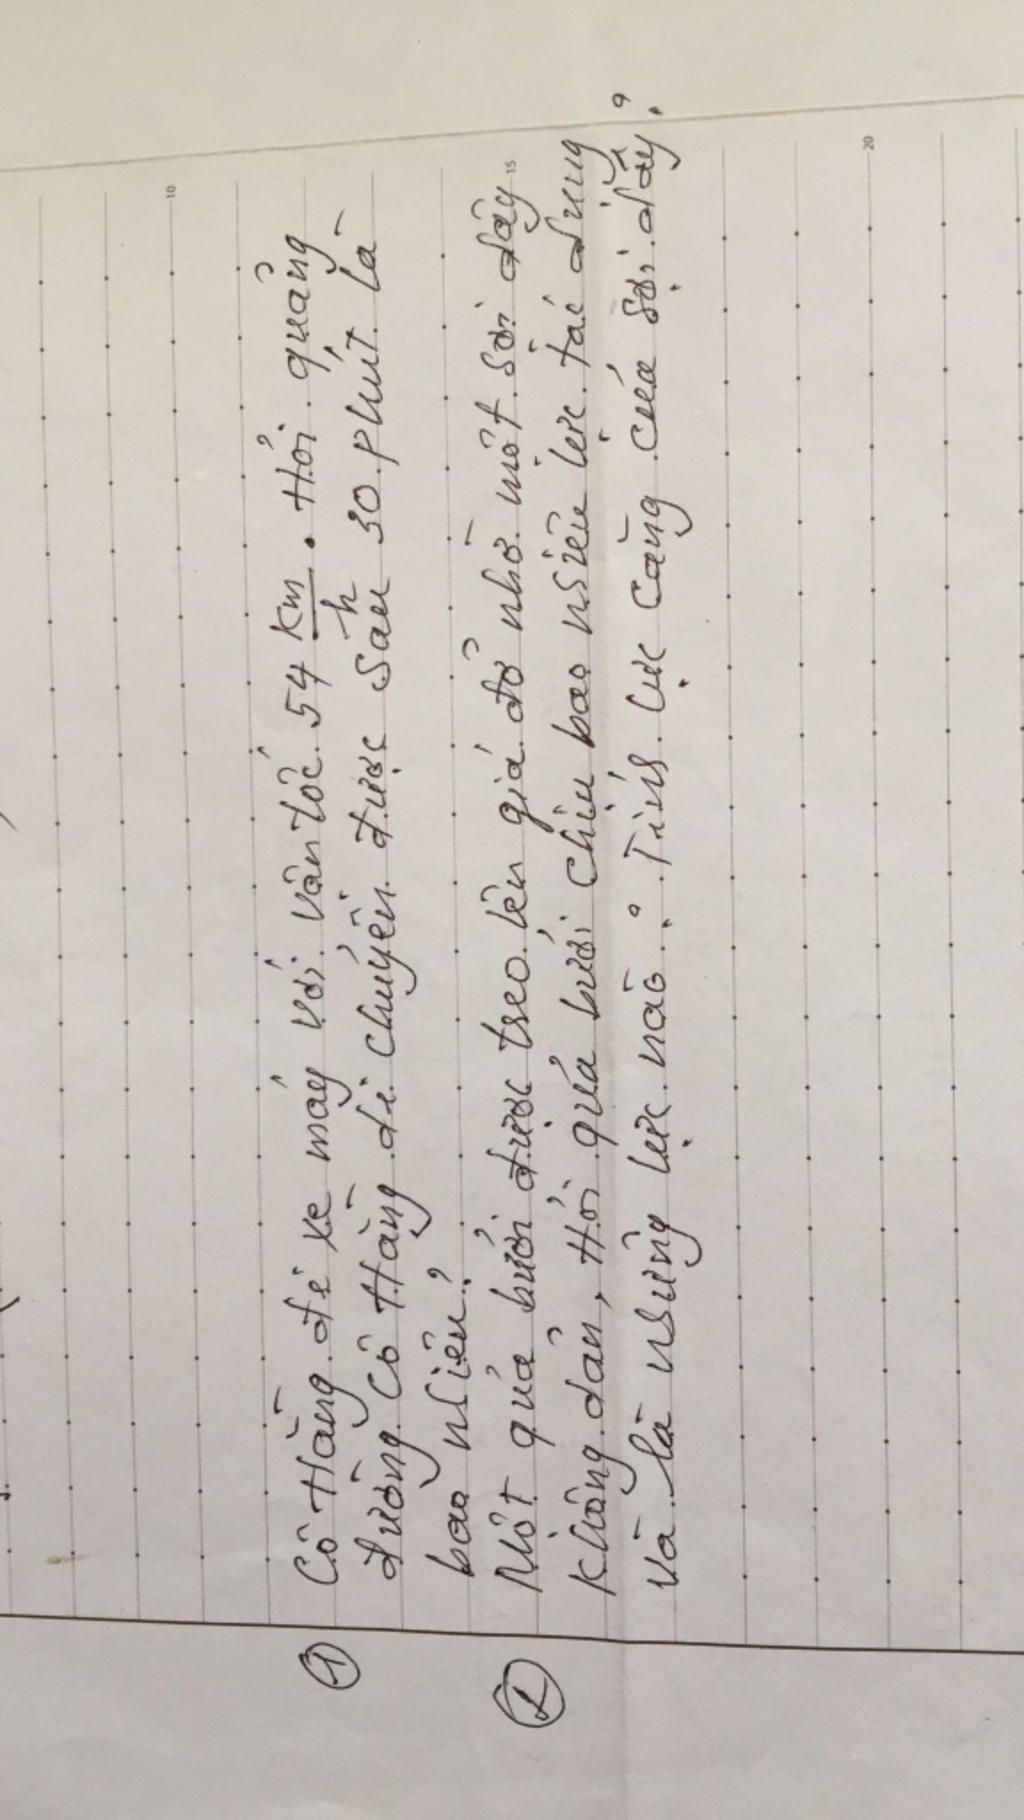 ① Cô Hằng đi xe máy với vận tốc 54 km/h. Hỏi quảng
đường cô Hằng di chuyển được sau 30 phút là
bao nhiêu?
② Một quả bưởi được treo lên giá đở nhờ một sợi dây
không dản, Hỏi quả bưởi chịu bao nhiêu lực tác dụng
và là những lực nào? Tính lực căng của sợi dây?
10
15
20